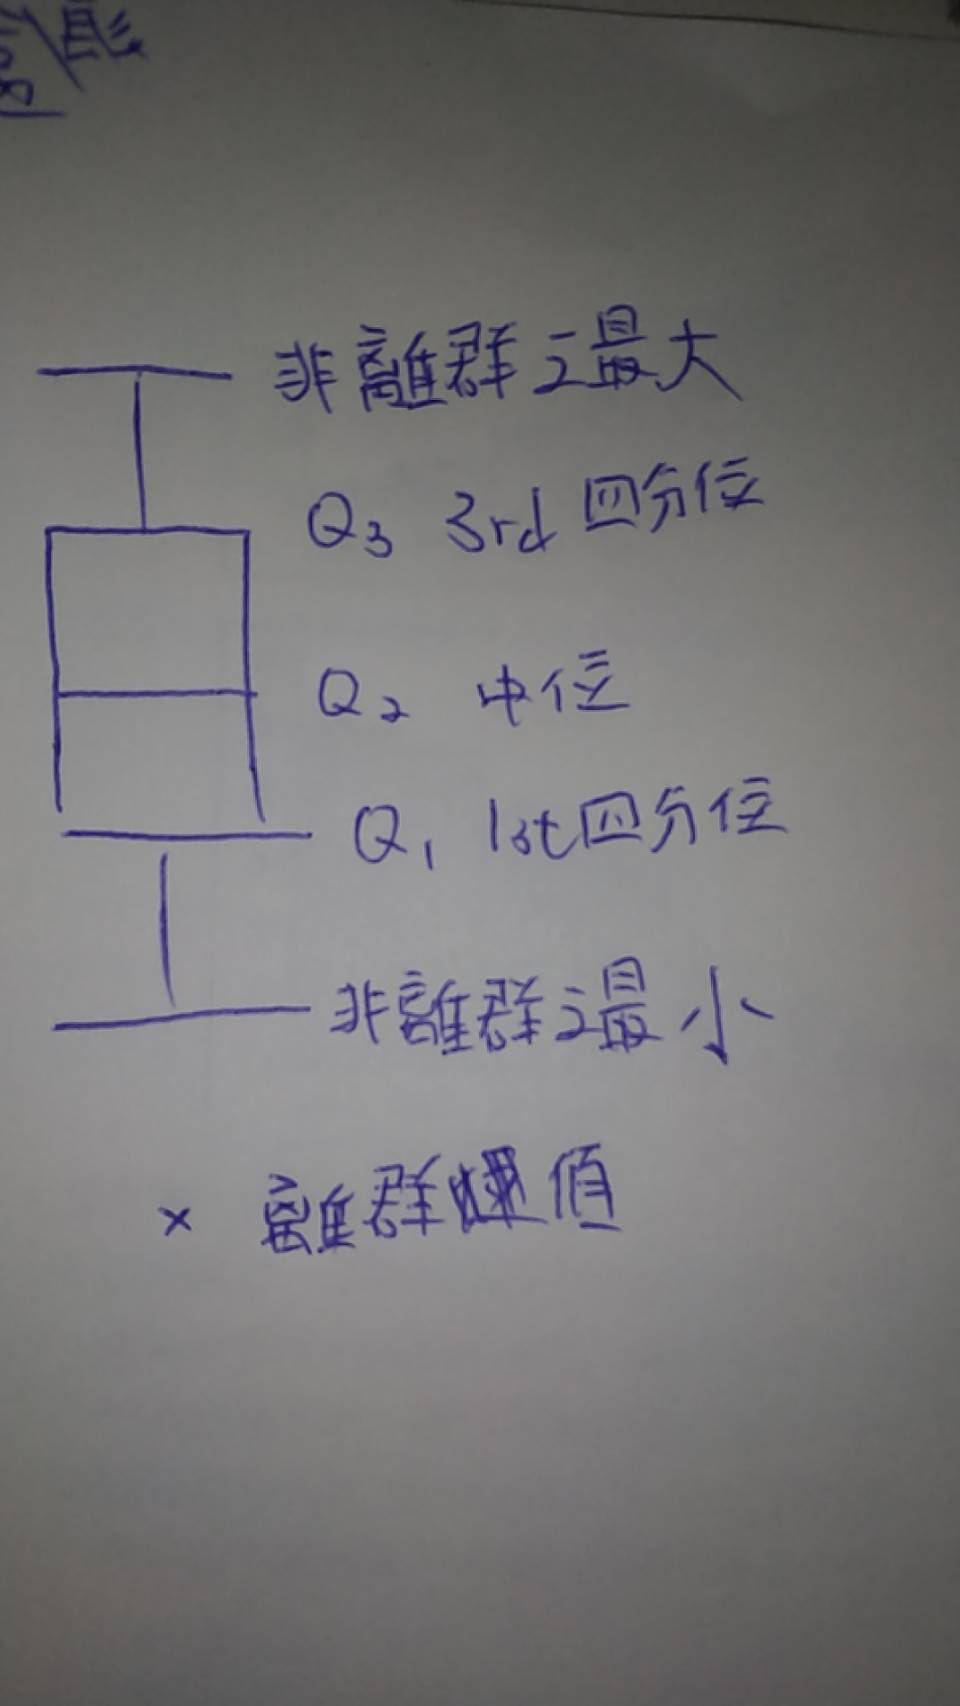 非離群之最大
Q3 3rd 四分位
Q2 中位
Q1 1st 四分位
非離群之最小
× 離群值